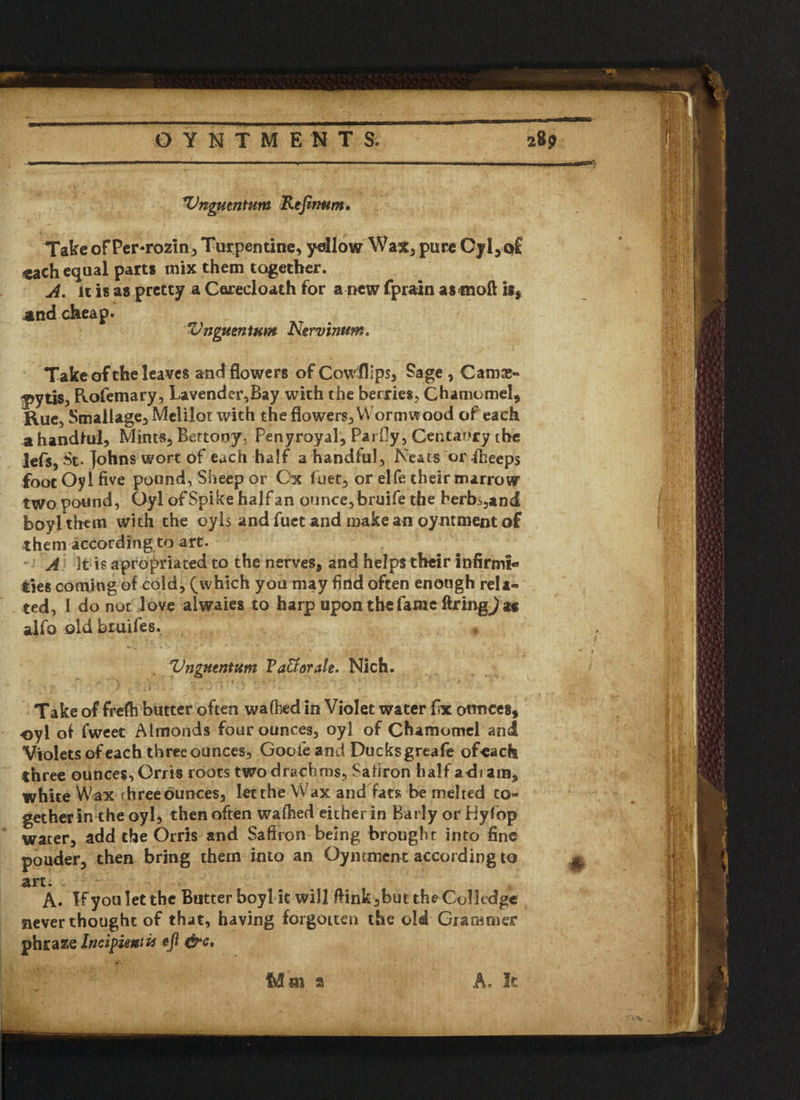 OYNTMENTS. 289
Vnguentum Resinum.
Take of Per-rozin, Turpentine, yellow Wax, pure Oyl, of
each equal parts mix them together.
A. It is as pretty a Cerecloath for a new ſprain as moſt is,
and cheap.
Vnguentum Nervinum.
Take of the leaves and flowers of Cowſlips, Sage, Camæ-
pytis, Roſemary, Lavender, Bay with the berries, Chamomel,
Rue, Smallage, Melilot with the flowers, Wormwood of each
a handful, Mints, Bettony, Penyroyal, Parſly, Centaury the
leſs, St. Johns wort of each half a handful, Neats or ſheeps
foot Oyl five pound, Sheep or Ox ſuet, or elſe their marrow
two pound, Oyl of Spike half an ounce, bruiſe the herbs, and
boyl them with the oyls and ſuet and make an oyntment of
them according to art.
A It is apropriated to the nerves, and helps their infirmi-
ties coming of cold, (which you may find often enough rela-
ted, I do not love alwaies to harp upon the ſame ſtring) as
alſo old bruiſes.
Vnguentum Pactorale. Nich.
Take of freſh butter often waſhed in Violet water ſix ounces,
oyl of ſweet Almonds four ounces, oyl of Chamomel and
Violets of each three ounces, Gooſe and Ducks greaſe of each
three ounces, Orris roots two drachms, Saffron half a dram,
white Wax three ounces, let the Wax and fats be melted to-
gether in the oyl, then often waſhed either in Barly or Hyſop
water, add the Orris and Saffron being brought into fine
pouder, then bring them into an Oyntment according to
art.
A. If you let the Butter boyl it will ſtink, but the Colledge
never thought of that, having forgotten the old Grammer
phraze Incipientis eſt &c.
Mm 2 A. It